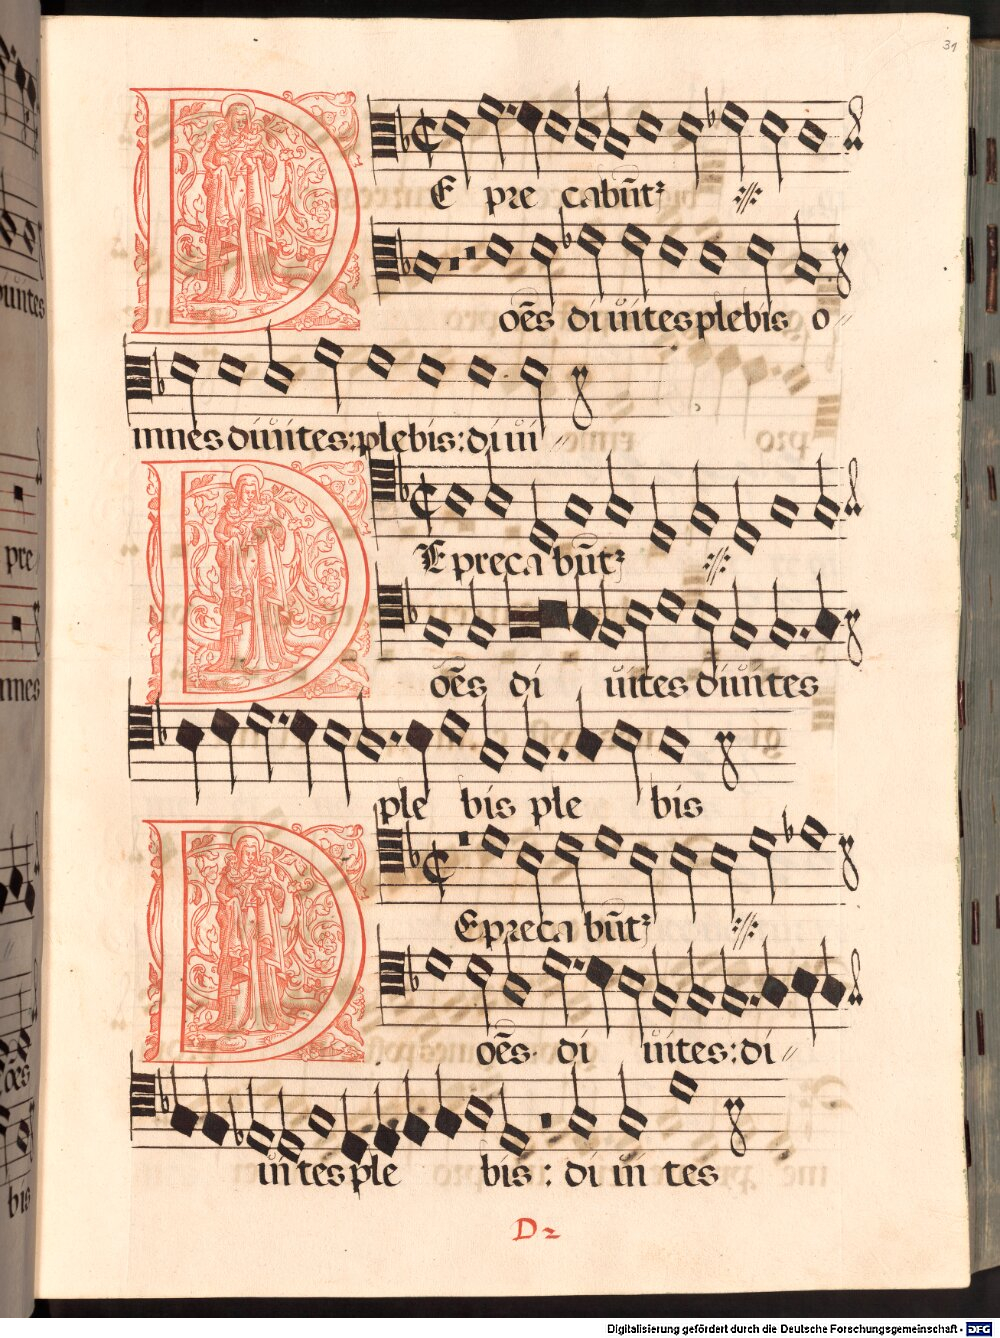 31
DE pre cabūtꝛ
oēs diuitesplebis o
mnes diuites:plebis:diui
DE preca būtꝛ
oēs di uites diuites
ple bis ple bis
DEpreca būtꝛ
oēs di uites:di
uites ple bis: diui tes
D2
uites
pre
mnes
oēs
bis
Digitalisierung gefördert durch die Deutsche Forschungsgemeinschaft - DFG